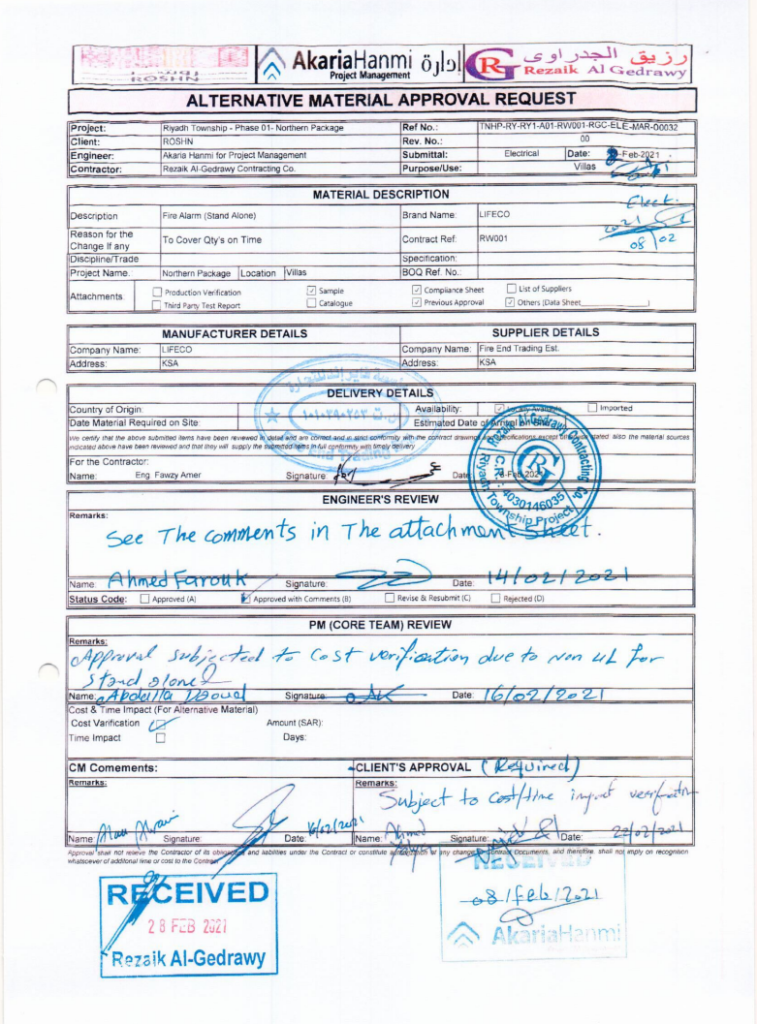 ROSHN
AkariaHanmi إدارة
Project Management
رزيق الجدراوى
Rezaik Al Gedrawy
ALTERNATIVE MATERIAL APPROVAL REQUEST
Project: Riyadh Township - Phase 01- Northern Package Ref No.: TNHP-RY-RY1-A01-RW001-RGC-ELE-MAR-00032
Client: ROSHN Rev. No.: 00
Engineer: Akaria Hanmi for Project Management Submittal: Electrical Date: 8-Feb-2021
Contractor: Rezaik Al-Gedrawy Contracting Co. Purpose/Use: Villas
MATERIAL DESCRIPTION
Elect.
Description Fire Alarm (Stand Alone) Brand Name: LIFECO
2021
08/02
Reason for the Change If any To Cover Qty's on Time Contract Ref: RW001
Discipline/Trade Specification:
Project Name. Northern Package Location Villas BOQ Ref. No.:
Attachments Production Verification Sample Compliance Sheet List of Suppliers
Third Party Test Report Catalogue Previous Approval Others (Data Sheet )
MANUFACTURER DETAILS SUPPLIER DETAILS
Company Name: LIFECO Company Name: Fire End Trading Est.
Address: KSA Address: KSA
DELIVERY DETAILS
Country of Origin: Availability: Imported
Date Material Required on Site: Estimated Date of Arrival on
We certify that the above submitted items have been reviewed in detail and are correct and in strict conformity with the contract drawings and specifications except stated also the material sources
indicated above have been reviewed and that they will supply the submitted items in full conformity with timely delivery
For the Contractor:
Name: Eng. Fawzy Amer Signature: Date: 8-Feb-2021
Rezaik Al-Gedrawy Contracting Co.
RG
C.R.: 4030146035
Riyadh Township Project
ENGINEER'S REVIEW
Remarks:
See The comments in The attachment Sheet.
Name: Ahmed Farouk Signature: Date: 14/02/2021
Status Code: Approved (A) Approved with Comments (B) Revise & Resubmit (C) Rejected (D)
PM (CORE TEAM) REVIEW
Remarks:
Approval subjected to cost verification due to non UL for
stand alone
Name: Abdella Signature: Date: 16/02/2021
Cost & Time Impact (For Alternative Material)
Cost Varification Amount (SAR):
Time Impact Days:
CM Comements: CLIENT'S APPROVAL (Required)
Remarks: Remarks:
Subject to cost/time impact verification
Name: Signature: Date: 16/02/2021 Name: Ahmed Signature: Date: 22/02/2021
Approval shall not relieve the Contractor of its obligations and liabilities under the Contract or constitute of any change contract documents, and therefore, shall not imply on recognision
whatsoever of additional time or cost to the Contract
RECEIVED
28 FEB 2021
Rezaik Al-Gedrawy
RECEIVED
08/feb/2021
AkariaHanmi